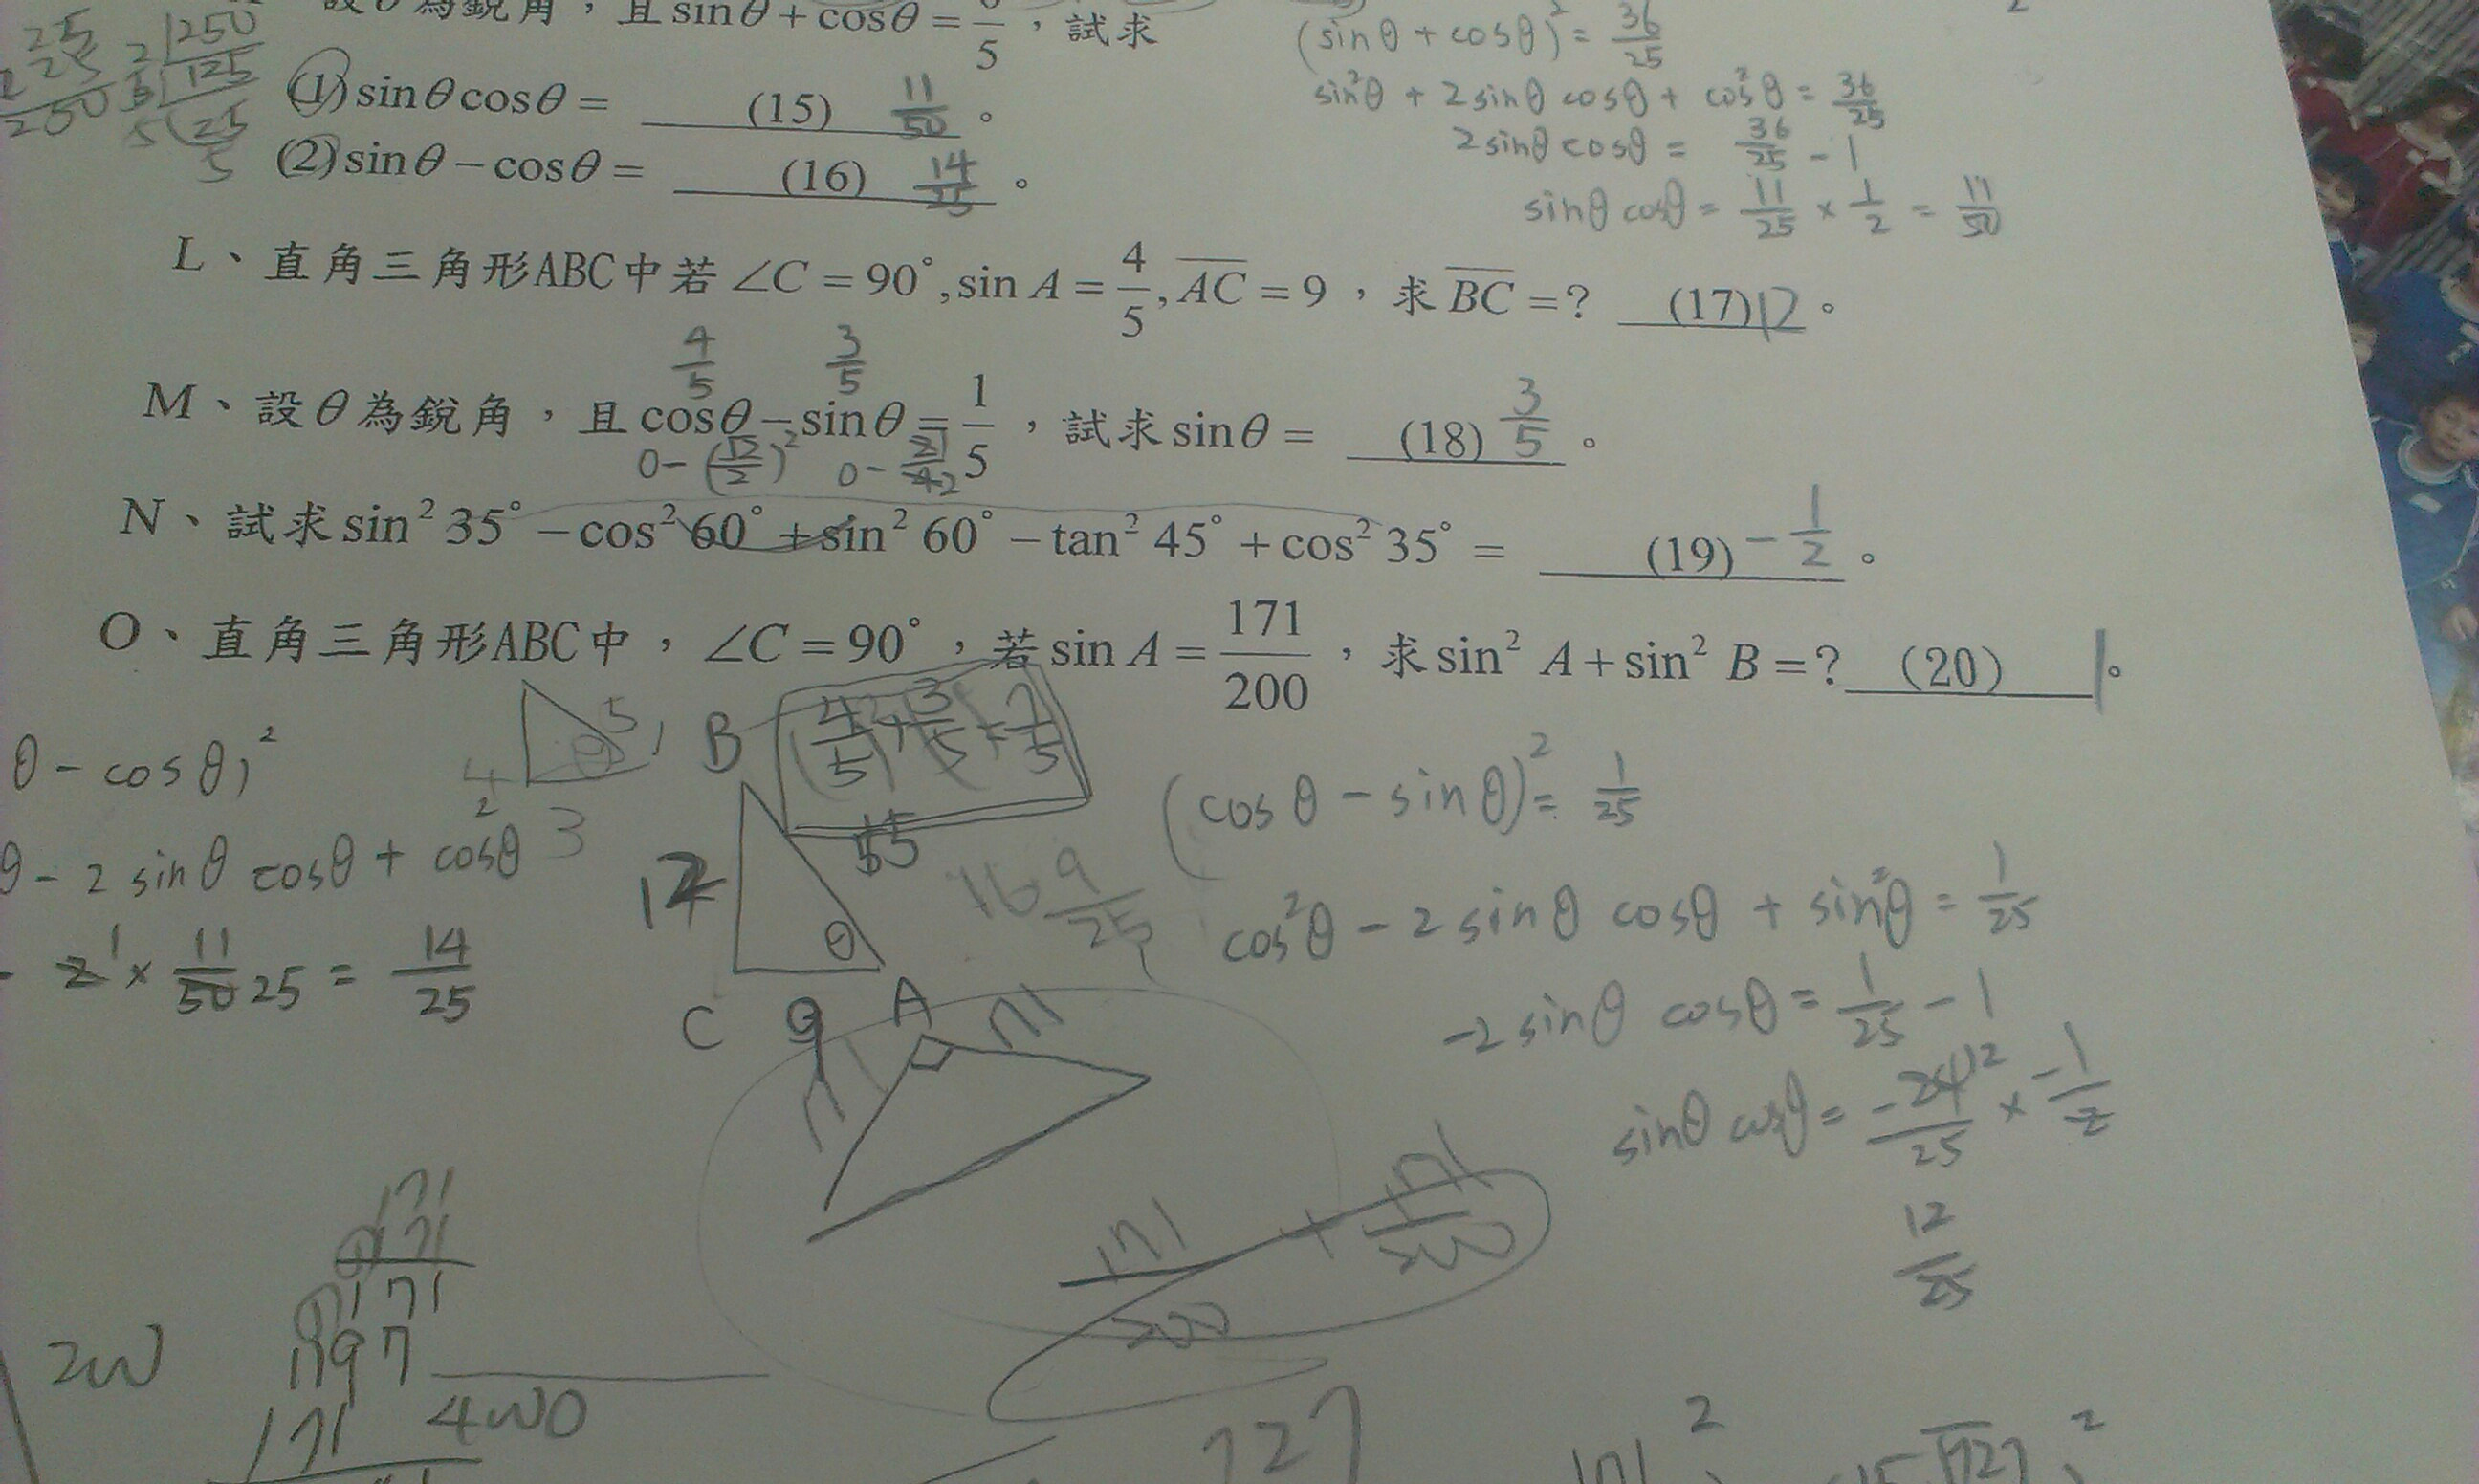 設θ為銳角，且sinθ+cosθ=6/5，試求
(1)sinθcosθ= (15) 11/50 。
(2)sinθ−cosθ= (16) 14/25 。
(sinθ+cosθ)²=36/25
sin²θ+2sinθcosθ+cos²θ=36/25
2sinθcosθ=36/25−1
sinθcosθ=11/25×1/2=11/50
25
25
250
2 250
5 125
5 25
5
L、直角三角形ABC中若∠C=90°,sin A=4/5,AC=9，求BC=? (17)12。
4/5 3/5
M、設θ為銳角，且cosθ−sinθ=1/5，試求sinθ= (18) 3/5 。
N、試求sin²35°−cos²60°+sin²60°−tan²45°+cos²35°= (19) −1/2 。
O、直角三角形ABC中，∠C=90°，若sin A=171/200，求sin² A+sin² B=? (20) 1。
θ−cosθ)²
θ−2sinθcosθ+cos²θ
2¹×11/50 25=14/25
5
4
3
B
4/5+3/5=7/5
15
12
θ
C 9 A
16 9/25
(cosθ−sinθ)²=1/25
cos²θ−2sinθcosθ+sin²θ=1/25
−2sinθcosθ=1/25−1
sinθcosθ=−24 12/25×−1/2
12/25
171
171/200+171/200
171
171
171
1197
171
200
400
727
171²